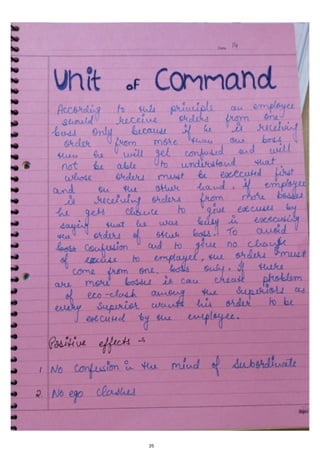 Date 14
Unit of Command
According to this principle an employee
should receive orders from one
boss only because if he is receiving
order from more than one boss
then he will get confused and will
not be able to understand that,
whose orders must be executed first
and on the other hand, if employee
is receiving orders from more bosses
he gets chance to give excuses by
saying that he was busy in executing
the orders of other boss. To avoid
boss confusion and to give no chance
of excuse to employee, the orders must
come from one boss only. If there
are more bosses is can create problem
of eco-clash among the superiors as
every superior wants his order to be
executed by the employee.
Positive effects →
1. No Confusion in the mind of subordinate
2. No ego clashes
25